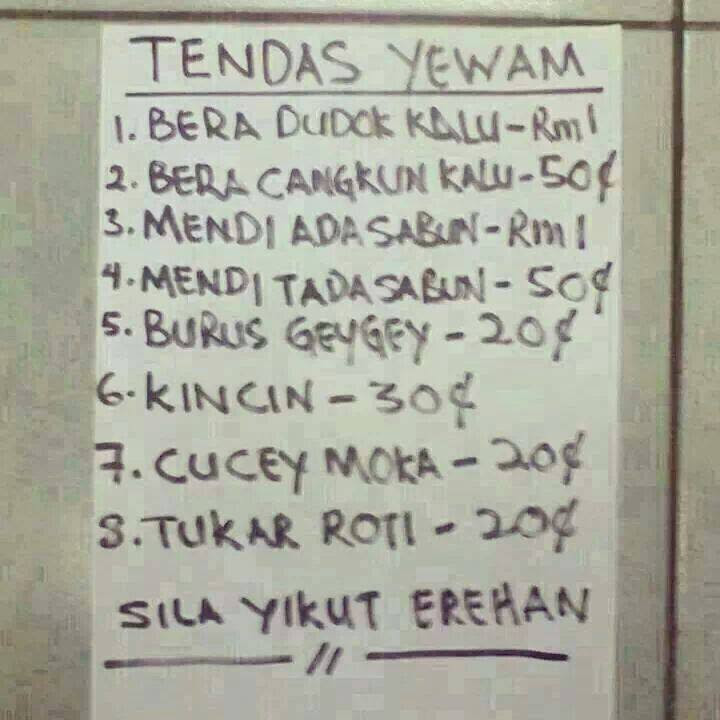 TENDAS YEWAM
1. BERA DUDOK KALU - Rm1
2. BERA CANGKUN KALU - 50¢
3. MENDI ADA SABUN - Rm1
4. MENDI TADA SABUN - 50¢
5. BURUS GEYGEY - 20¢
6. KINCIN - 30¢
7. CUCEY MOKA - 20¢
8. TUKAR ROTI - 20¢
SILA YIKUT EREHAN
//